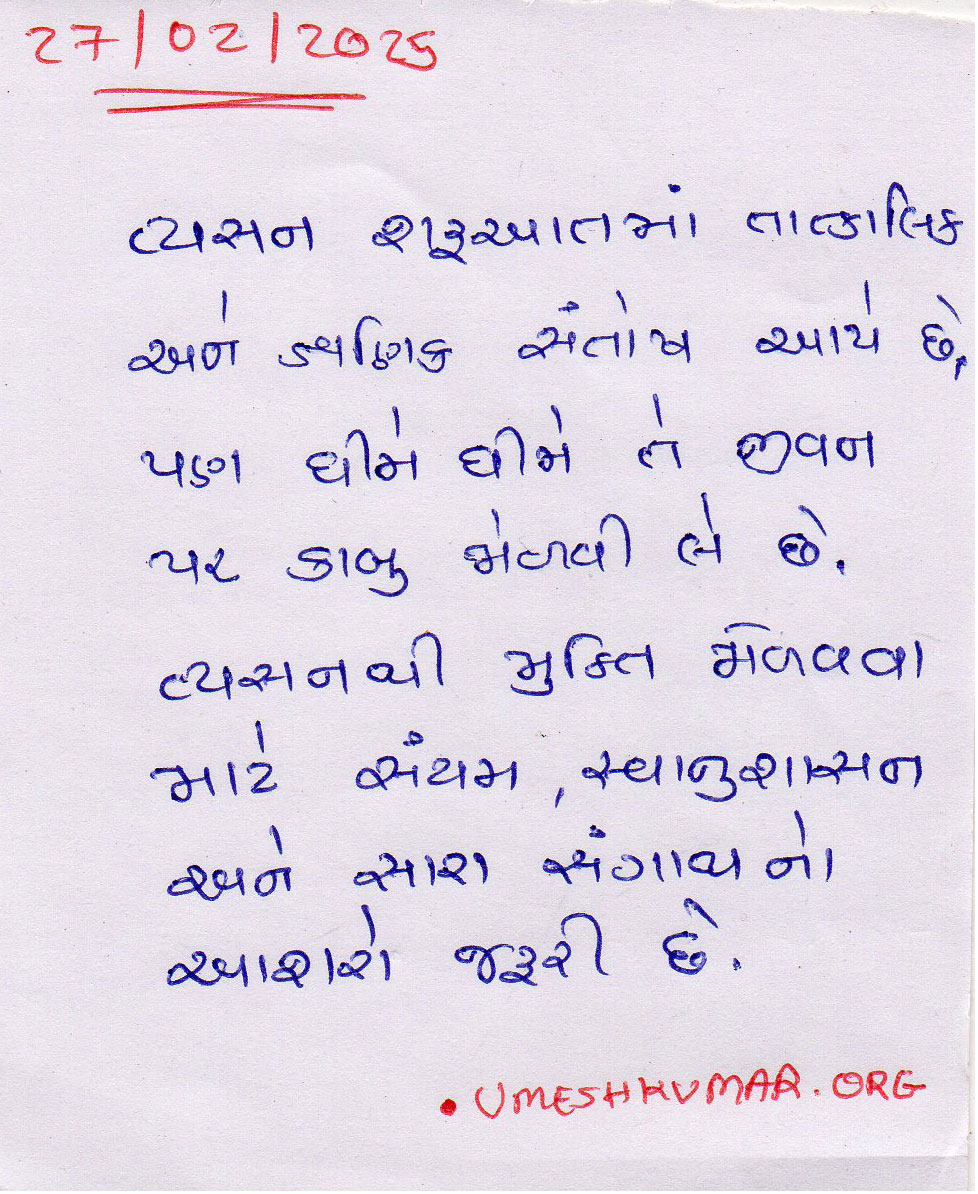 27/02/2025
વ્યસન શરૂઆતમાં તાત્કાલિક
અને ક્ષણિક સંતોષ આપે છે,
પણ ધીમે ધીમે તે જીવન
પર કાબુ મેળવી લે છે.
વ્યસનથી મુક્તિ મેળવવા
માટે સંયમ, સ્વાનુશાસન
અને સારા સંગાથ નો
આશરો જરૂરી છે.
• UMESHKUMAR.ORG